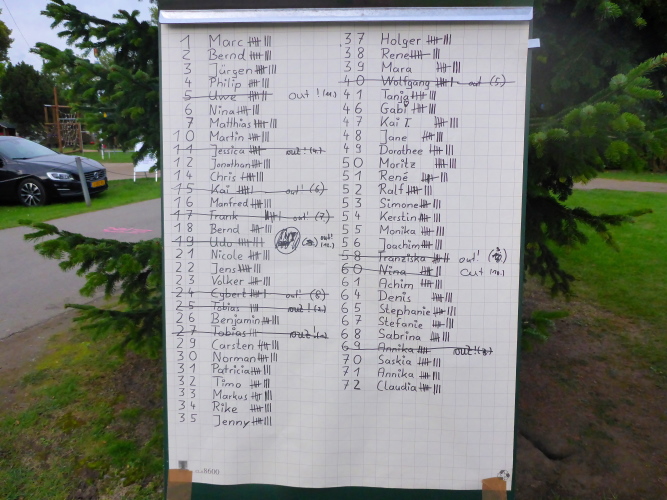 1 Marc
2 Bernd
3 Jürgen
4 Philip
5 Uwe out!
6 Nina
7 Matthias
10 Martin
11 Jessica out!
12 Jonathan
14 Chris
15 Kai out! (6)
16 Manfred
17 Frank out! (7)
18 Bernd
19 Udo
21 Nicole
22 Jens
23 Volker
24 Egbert out! (8)
25 Tobias out!
26 Benjamin
27 Tobias out!
29 Carsten
30 Norman
31 Patricia
32 Timo
33 Markus
34 Rike
35 Jenny
37 Holger
38 Rene
39 Mara
40 Wolfgang out (5)
41 Tanja
46 Gabi
47 Kai T.
48 Jane
49 Dorothee
50 Moritz
51 René
52 Ralf
53 Simone
54 Kerstin
55 Monika
56 Joachim
58 Franziska out!
60 Nina out
61 Achim
64 Denis
65 Stephanie
67 Stefanie
68 Sabrina
69 Annika out!
70 Saskia
71 Annika
72 Claudia